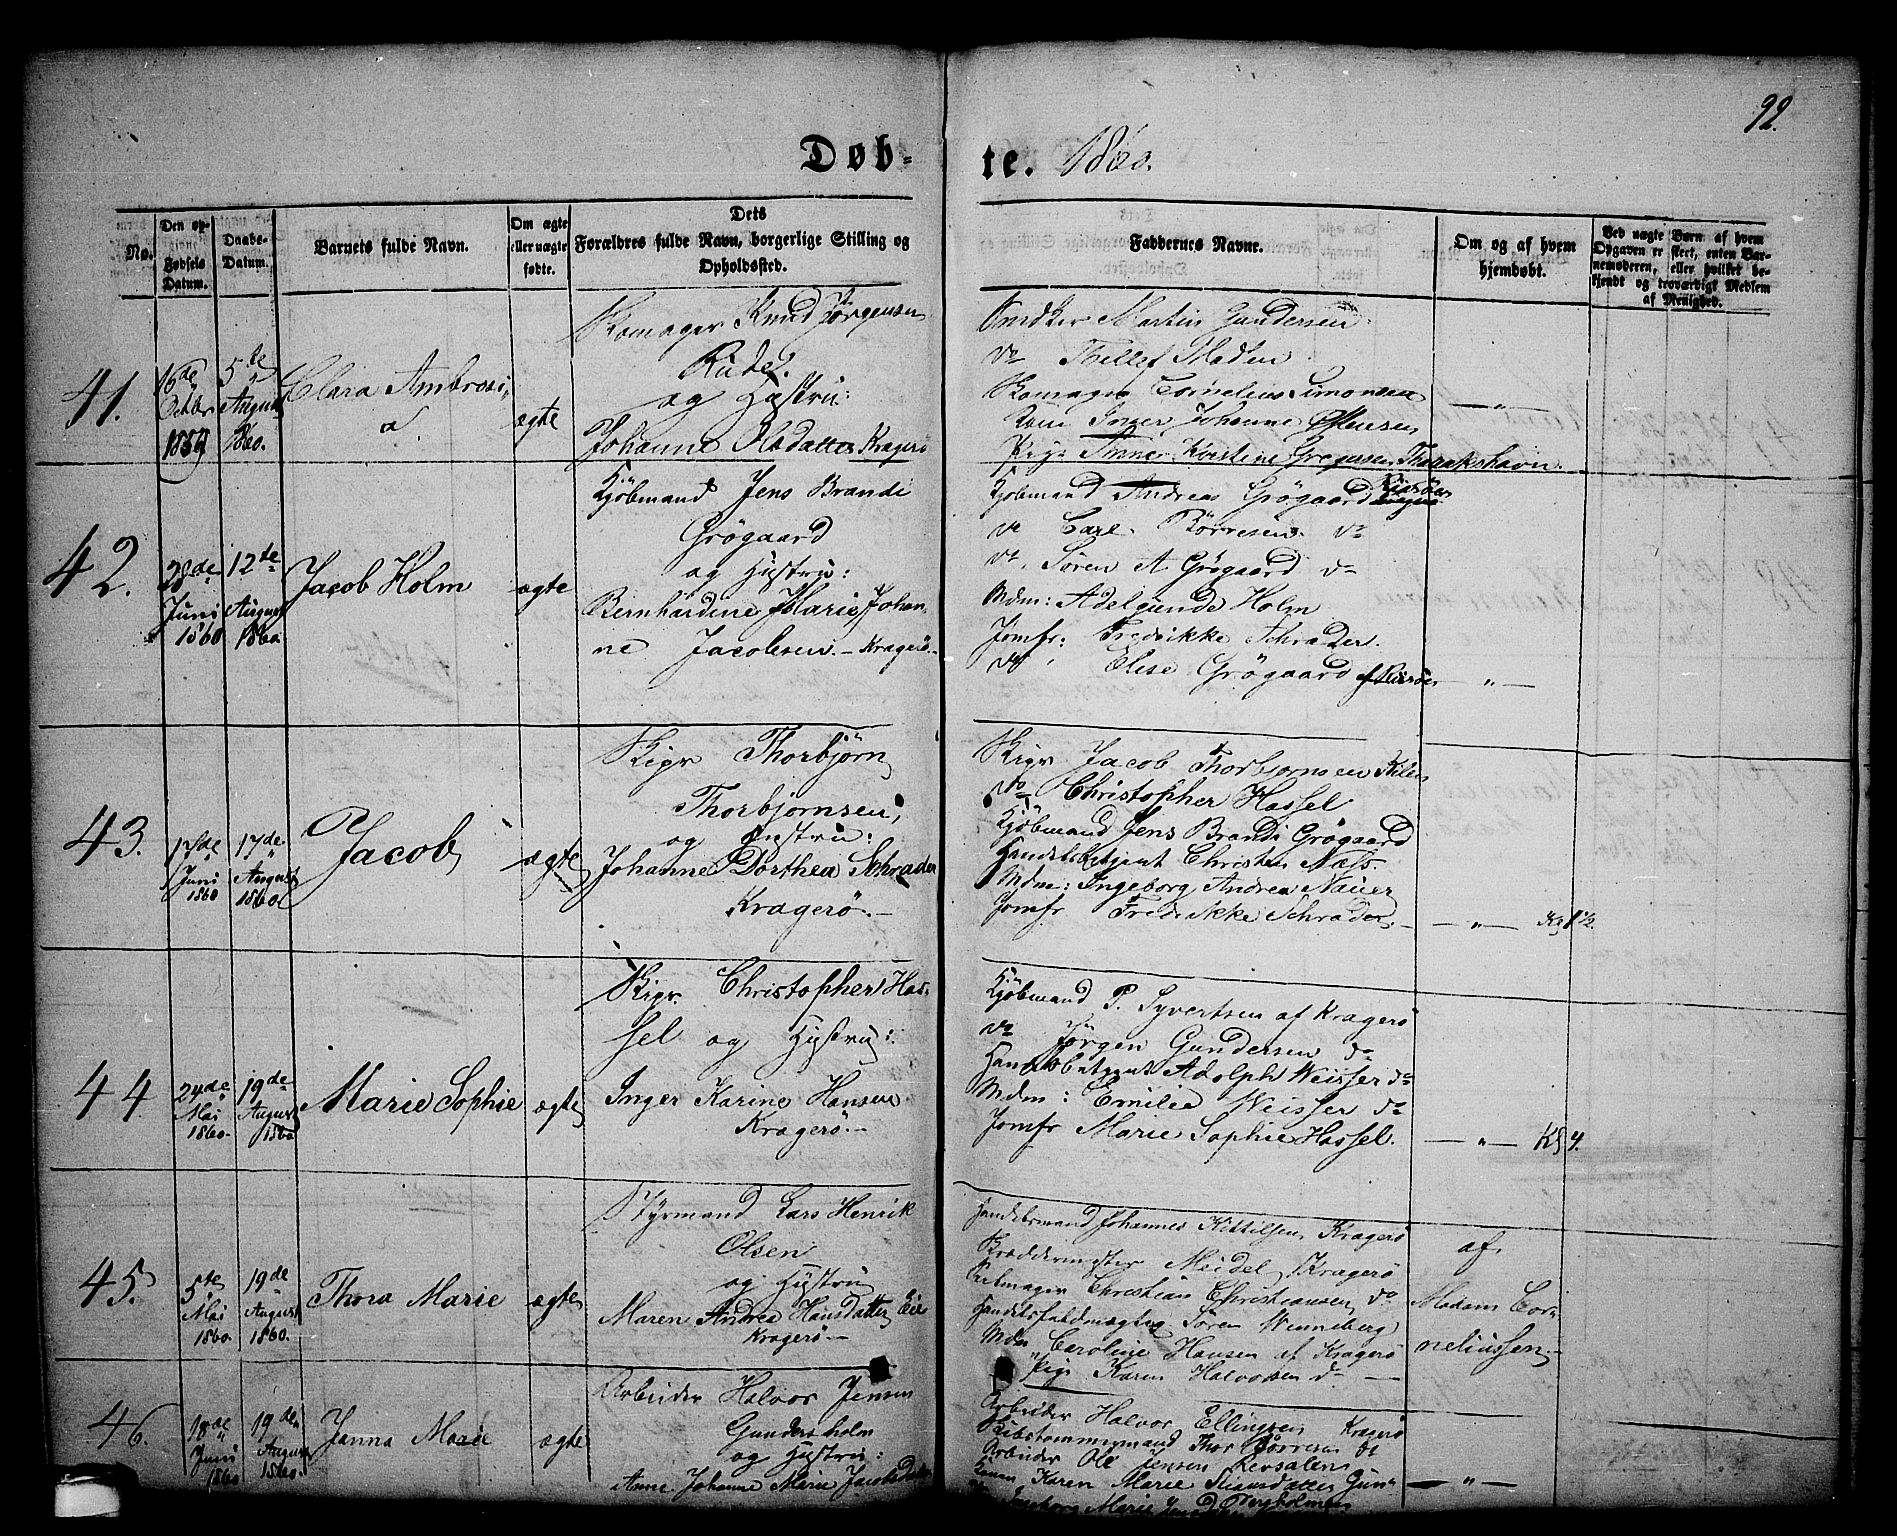 92.
Døb-
te. 1860.
No.
Den op-
givne
Fødsels
Datum.
Daabs-
Datum.
Barnets fulde Navn.
Om ægte
eller uægte
fødte.
Dets
Forældres fulde Navn, borgerlige Stilling og
Opholdssted.
Faddernes Navne.
Om og af hvem
hjemdøbt.
Ved uægte Børn af hvem
Opgaven er skeet, enten Bar-
nemoderen, eller hvilket be-
kjendt og troværdigt Medlem
af Menighed.
41.
16de
Octbr
1859
5te
August
1860.
Clara Ambrosi-
a
ægte
Skomager Knud Jørgensen
Rude.
og Hustru:
Johanne Kragerö
Snedker Martin Gundersen
do Thellef Madsen
Skomager Cornelius Simonsen
Kone Inger Johanne
Pige Kirstine
— „ —
42.
28de
Juni
1860
12te
August
1860.
Jacob Holm
ægte
Kjöbmand Jens Brandi
Grögaard
og Hustru:
Bernhardine Marie Johan-
ne Jacobsen. – Kragerö. –
Kjöbmand Andreas Grögaard
do Carl Börresen do
do Sören A Grögaard do
Mdm: Adelgunde Holm
Jomfr: Fredrikke Schrader.
do Elise Grögaard af Riisöer
— „ —
43.
17de
Juni
1860
17de
August
1860
Jacob
ægte
Skipr Thorbjörn
Thorbjörnsen,
og Hustru:
Johanne Dorthea Schrader
Kragerö. –
Skipr Jacob Thorbjörnsen
do Christopher Hassel
Kjöbmand Jens Brandi Grögaard
Handelsbetjent Christen Næss.
Mdm: Ingeborg Andrea Nauer
Jomfr Fredrikke Schrader. –
— „ —
44
24de
Mai
1860.
19de
August
1860
Marie Sophie
ægte
Skipr. Christopher Has-
sel og Hustru:
Inger Karine Hansen
Kragerö. –
Kjöbmand P. Syvertsen af Kragerö
do Jörgen Gundersen do
Handelsbetjent Adolph Weisser do
Mdm: Emilie Weisser do
Jomfr Marie Sophie Hassel.
— „ —
45.
5te
Mai
1860.
19de
August
1860.
Thora Marie
ægte
Styrmand Lars Henrik
Olsen
og Hustru
Maren Andrea Hansdatter
Kragerö. –
Handelsmand Johannes Kittilsen Kragerö
Meidel Kragerö
Christian Christiansen do
Handelsfuldmægtig Sören Wenneberg
Mdm Caroline Hansen af Kragerö
Pige Karen Halvorsen do
af
Madam Cor-
neliussen. –
46.
18de
Juni
1860
19de
August
1860.
Janna Marie
ægte
Arbeider Halvor Jensen
Gundersholm
og Hustru:
Anne Johanne Marie
Arbeider Halvor Ellingsen Kragerö
Thor Börresen do
Arbeider Ole Jensen
Kone Karen Marie
Marie
— „ —